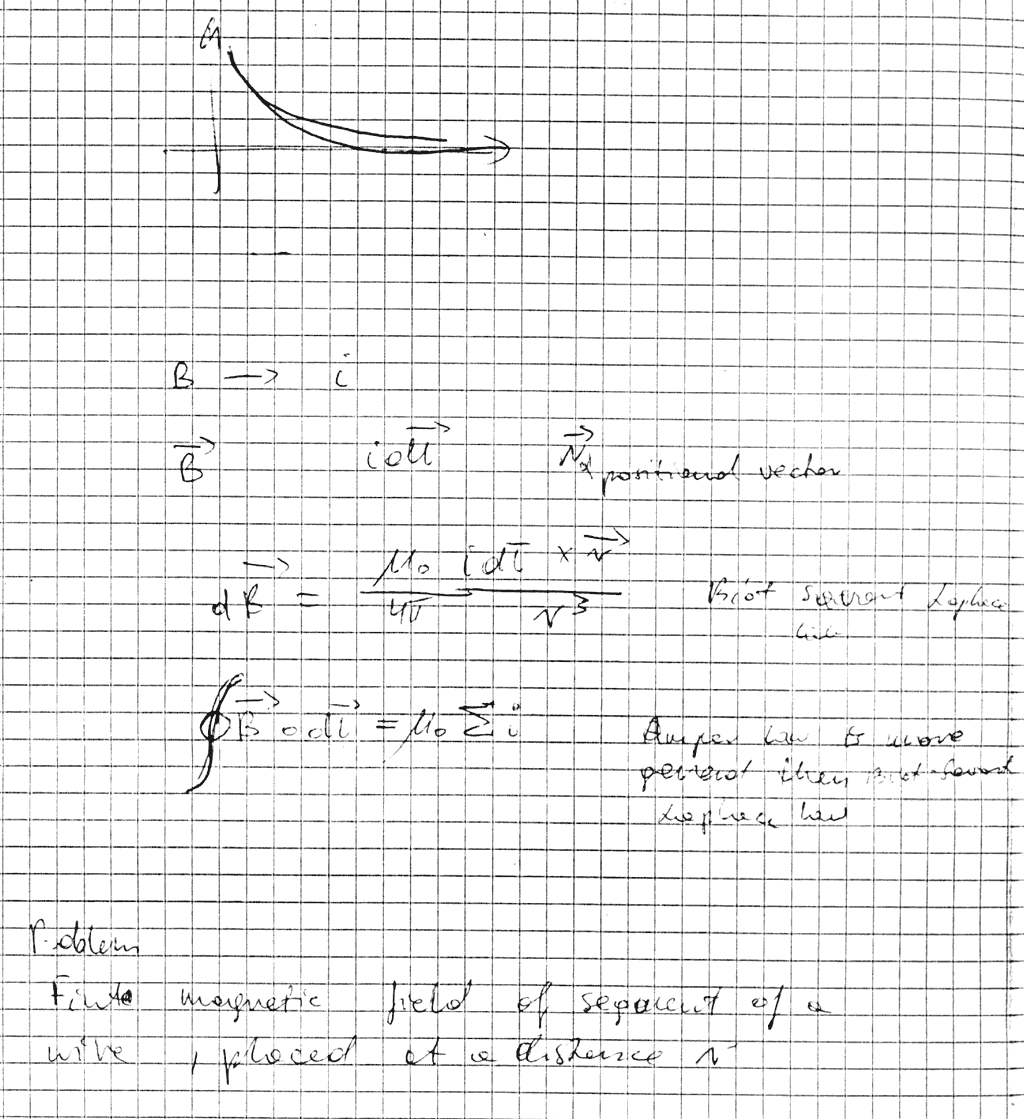 B → i
B⃗ i dl⃗ r⃗ positional vector
dB⃗ = μ₀/4π i dl × r⃗ / r³ Biot Savart Laplace
law
∮ B⃗ ∘ dl⃗ = μ₀ Σ i
Amper law is more
general then Biot-Savart
Laplace law
Problem
magnetic field of segment of a
wire , placed at a distance r